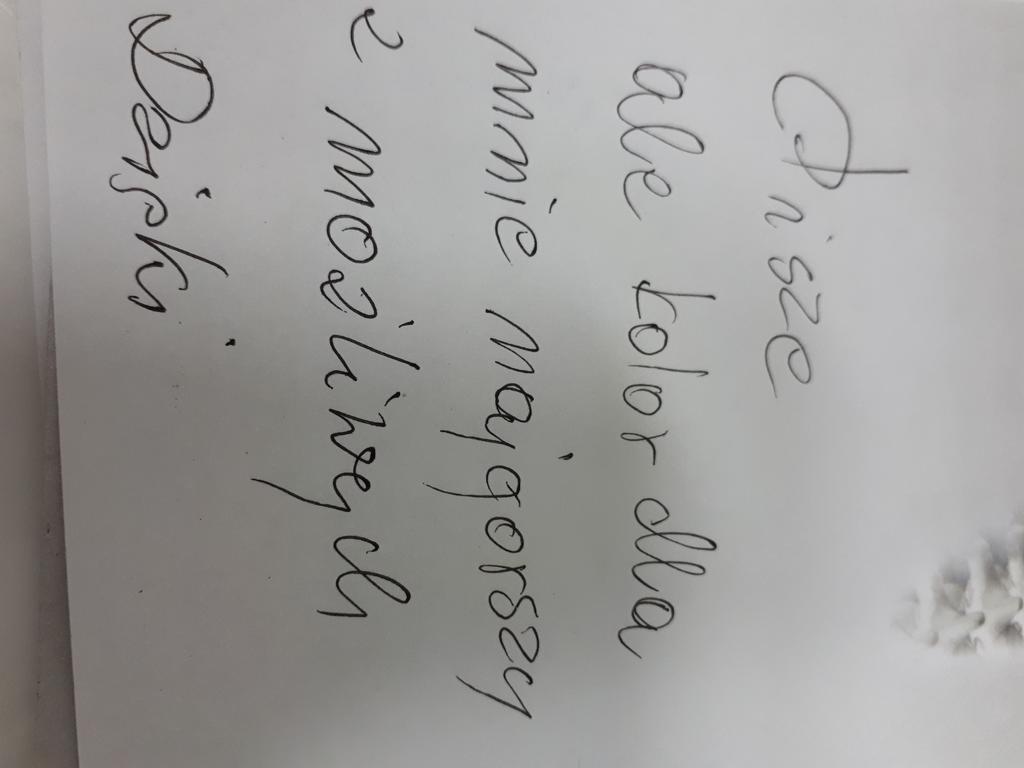 Pisze
ale kolor dla
mnie najgorszy
z możliwych
Dzięki